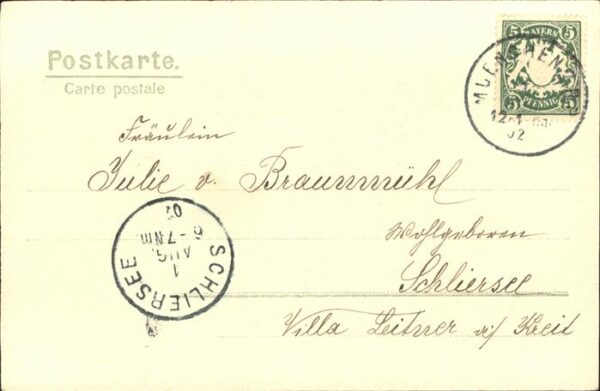 Postkarte.
Carte postale
5 BAYERN 5
5 PFENNIG 5
MUENCHEN
12-1
02
Fräulein
Julie v. Braunmühl
Wohlgeboren
Schliersee
Villa Leitner a/ Kreit
SCHLIERSEE
1
AUG.
6-7 Nm.
02